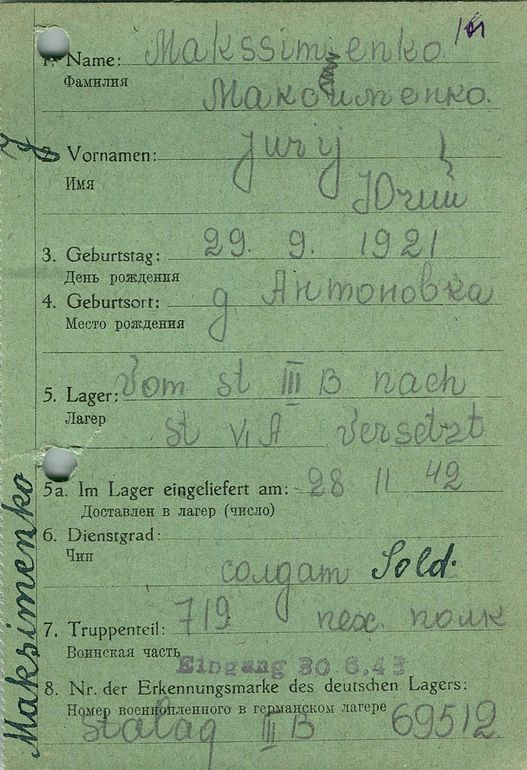 1. Name: Makssimienko
Фамилия
Максименко.
2. Vornamen: Jurij
Имя
Юрий
3. Geburtstag: 29. 9. 1921
День рождения
4. Geburtsort: д Антоновка
Место рождения
5. Lager: Vom st III B nach
Лагер
st VI A versetzt
5a. Im Lager eingeliefert am: 28 11 42
Доставлен в лагер (число)
6. Dienstgrad:
Чин
солдат Sold.
7. Truppenteil: 719 пех. полк
Воинская часть
Eingang 30.6.43
8. Nr. der Erkennungsmarke des deutschen Lagers:
Номер военнопленного в германском лагере
Stalag III B 69512
Maksimenko